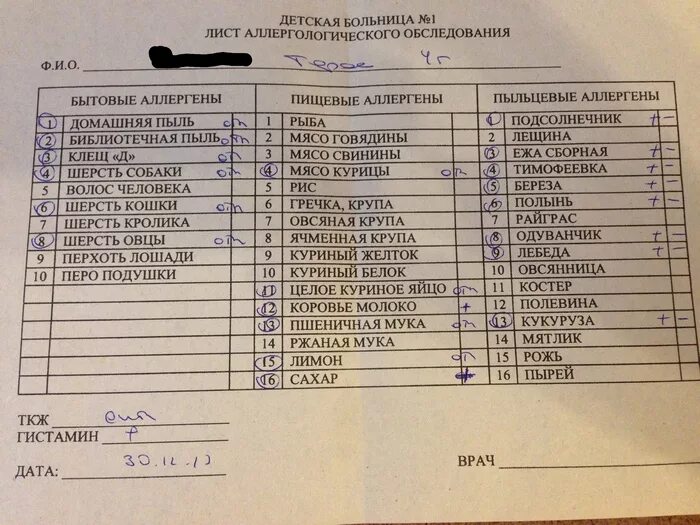 ДЕТСКАЯ БОЛЬНИЦА №1
ЛИСТ АЛЛЕРГОЛОГИЧЕСКОГО ОБСЛЕДОВАНИЯ
Ф.И.О. 4 г
БЫТОВЫЕ АЛЛЕРГЕНЫ ПИЩЕВЫЕ АЛЛЕРГЕНЫ ПЫЛЬЦЕВЫЕ АЛЛЕРГЕНЫ
1 ДОМАШНЯЯ ПЫЛЬ отр 1 РЫБА 1 ПОДСОЛНЕЧНИК + –
2 БИБЛИОТЕЧНАЯ ПЫЛЬ отр 2 МЯСО ГОВЯДИНЫ 2 ЛЕЩИНА
3 КЛЕЩ «Д» отр 3 МЯСО СВИНИНЫ 3 ЕЖА СБОРНАЯ + –
4 ШЕРСТЬ СОБАКИ отр 4 МЯСО КУРИЦЫ отр 4 ТИМОФЕЕВКА + –
5 ВОЛОС ЧЕЛОВЕКА 5 РИС 5 БЕРЕЗА + –
6 ШЕРСТЬ КОШКИ отр 6 ГРЕЧКА, КРУПА 6 ПОЛЫНЬ + –
7 ШЕРСТЬ КРОЛИКА 7 ОВСЯНАЯ КРУПА 7 РАЙГРАС
8 ШЕРСТЬ ОВЦЫ отр 8 ЯЧМЕННАЯ КРУПА 8 ОДУВАНЧИК + –
9 ПЕРХОТЬ ЛОШАДИ 9 КУРИНЫЙ ЖЕЛТОК 9 ЛЕБЕДА + –
10 ПЕРО ПОДУШКИ 10 КУРИНЫЙ БЕЛОК 10 ОВСЯННИЦА
11 ЦЕЛОЕ КУРИНОЕ ЯЙЦО отр 11 КОСТЕР
12 КОРОВЬЕ МОЛОКО + 12 ПОЛЕВИНА
13 ПШЕНИЧНАЯ МУКА отр 13 КУКУРУЗА + –
14 РЖАНАЯ МУКА 14 МЯТЛИК
15 ЛИМОН отр 15 РОЖЬ
16 САХАР + 16 ПЫРЕЙ
ТКЖ отр
ГИСТАМИН +
ДАТА: ВРАЧ